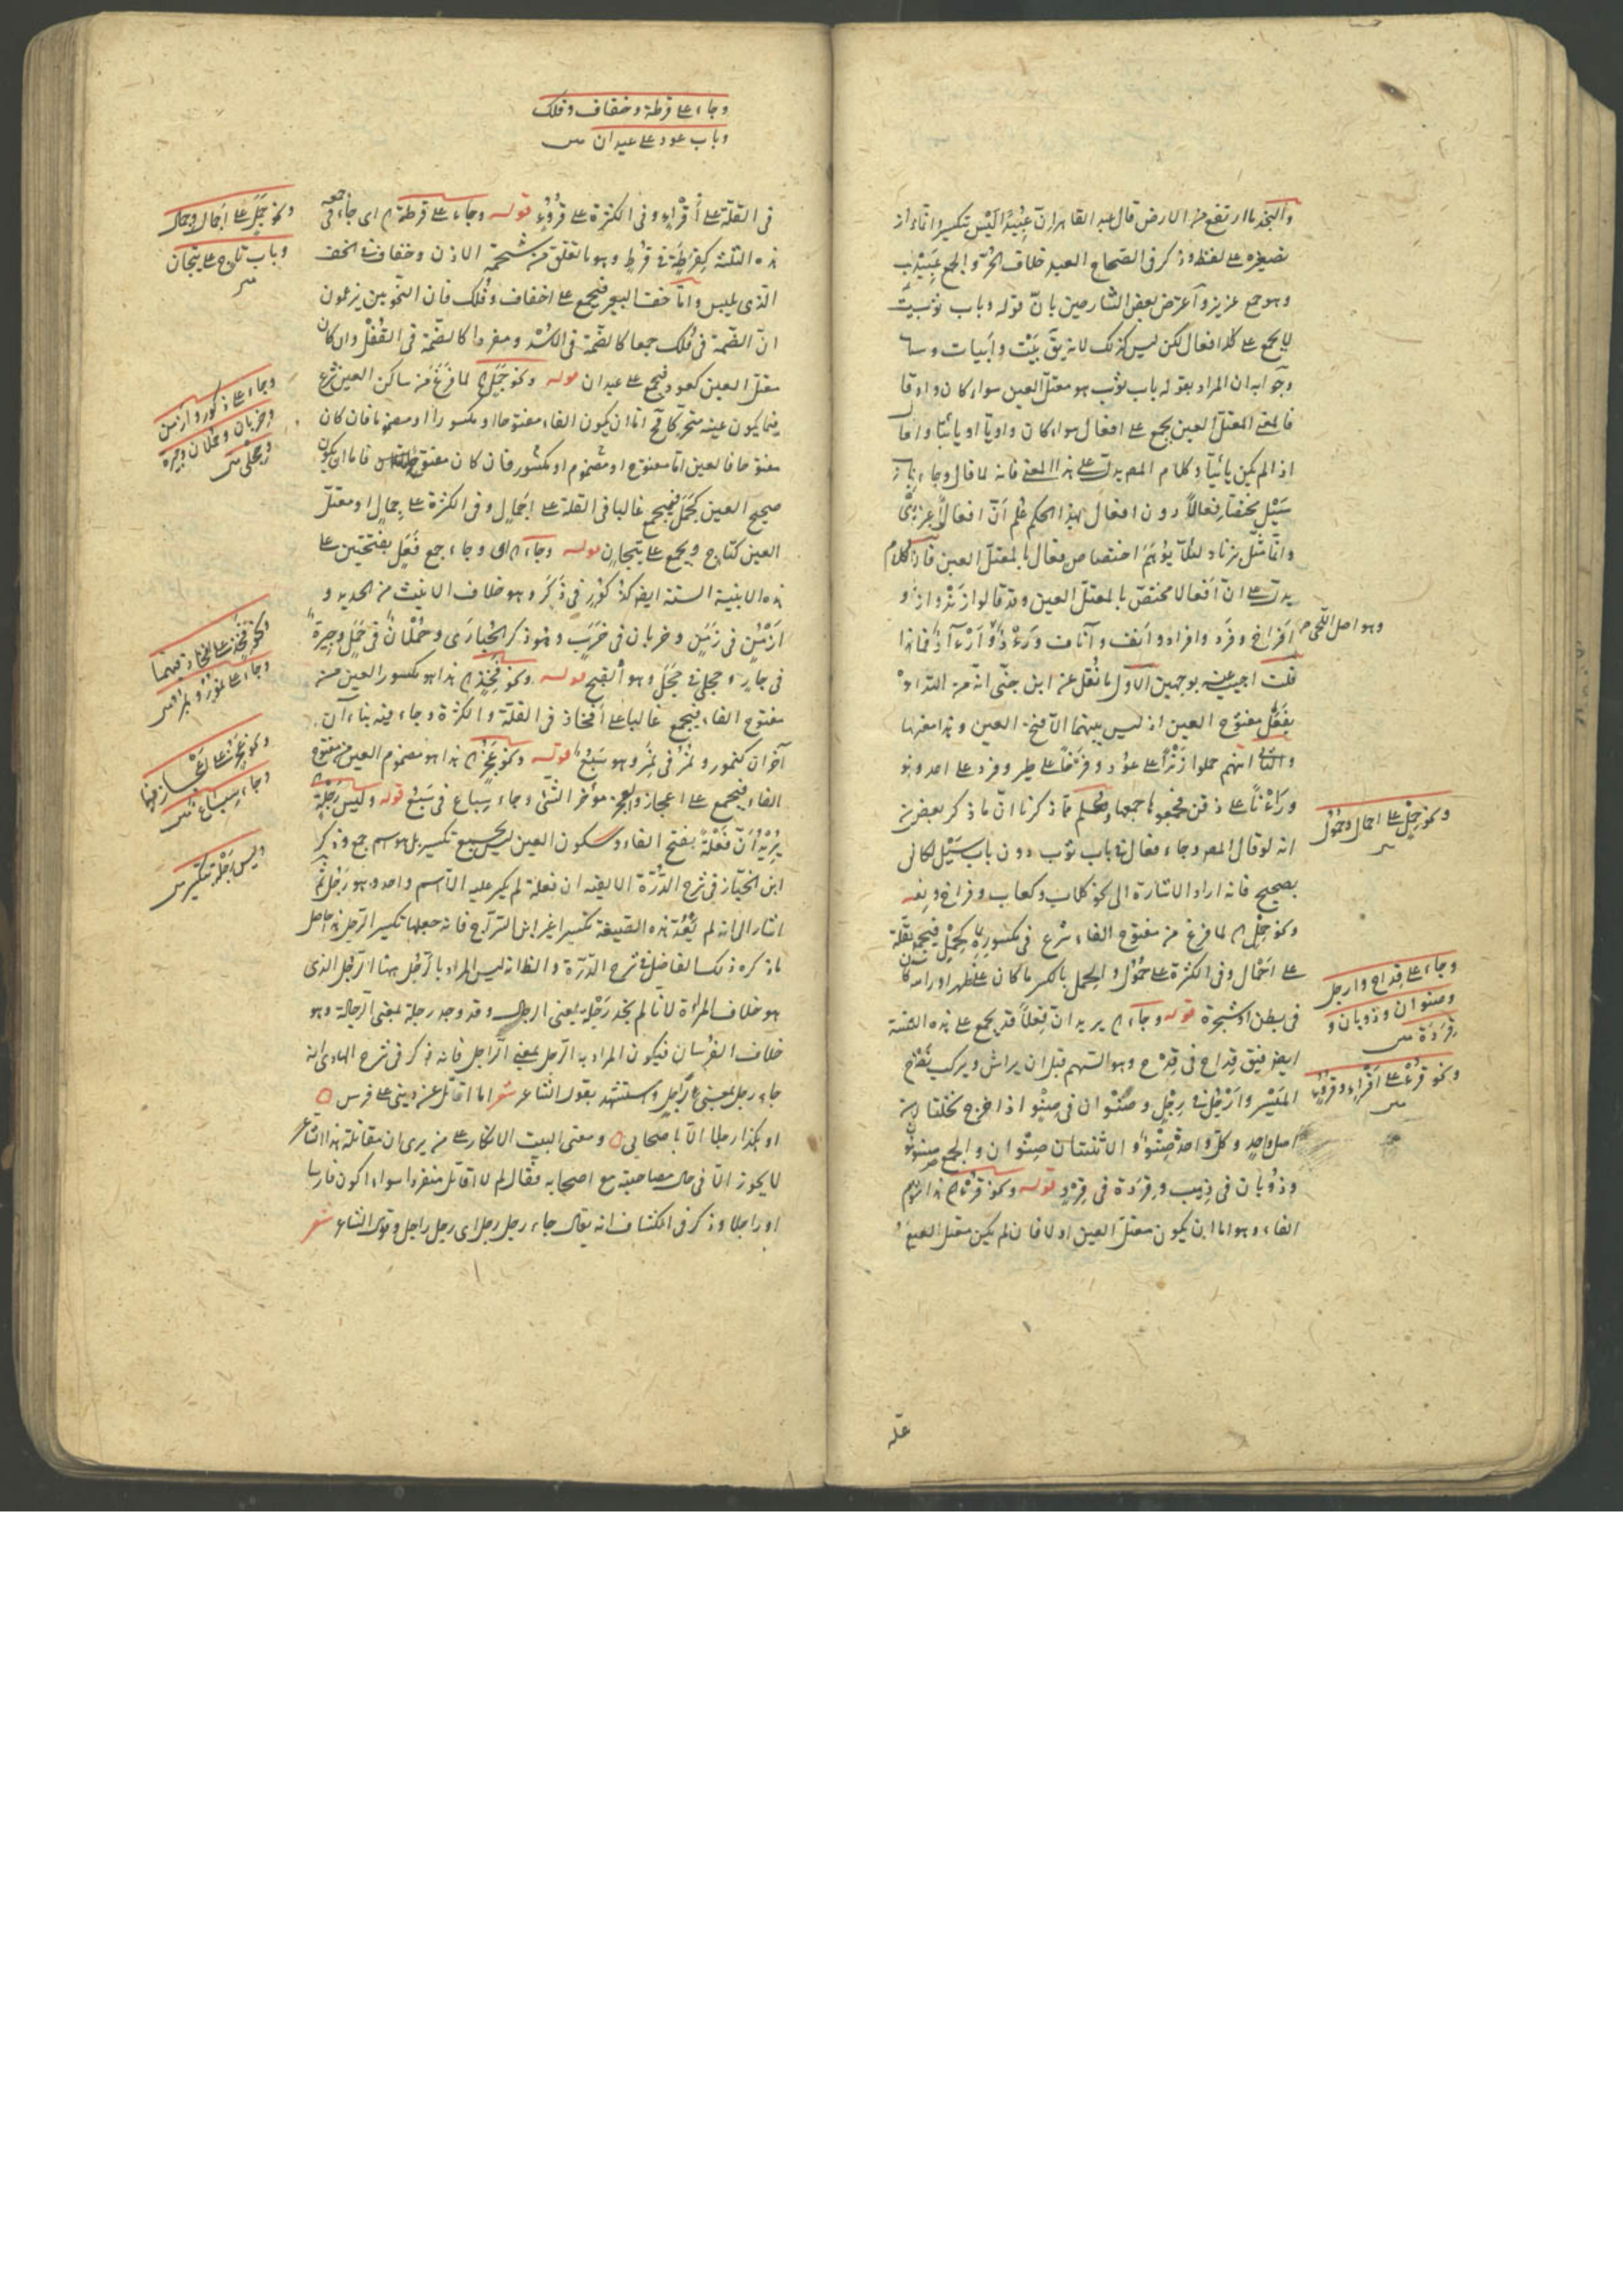 والنجد ما ارتفع من الارض قال عبد القاهر ان عبيدا ليس بتكسير وانما از
تصغيره على لفظه وذكر فى الصحاح العبد خلاف الحر والجمع عبيد
وهو جمع عزيز وآعترض بعض الشارحين بانّ قوله وباب ثوب
لا يجمع على افعال لكن ليس كذلك لانه يقَ بَيْت وأبيات
وجوابه ان المراد بقوله باب ثوب هو معتلّ العين سواء كان واويا
فالمعنى المعتلّ العين يجمع على افعال سواء كان واويّا او يائيّا واما
اذا لم يكن يائيّا وكلام المص يدل على هذا المعنى فانه لما قال وجاء
سَيْل دون افعال بهذا الحكم عُلم انّ افعالاً
وانما مثّل بزناد لئلّا يُوهَم اختصاص فعال بالمعتلّ العين فان الكلام
يدل على انّ افعالا مختصّ بالمعتلّ العين وقد قالوا ازْنُد وازناد و
وهو اصل اللحى
افراخ وفرد وافراد وانف وآناف
قلت اجيب عنه بوجهين الاول ما نُقل عن ابن جنّى انه من التداو
بفَعَل مفتوح العين اذ ليس بينهما الّا فتحة العين وهذا معها
والثانى انهم حملوا زنْدًا على عُود وفرخًا على طير وفرد على احد ونحو
ورَأدًا على ذقن فجمعوها جمعها ويعلم مما ذكرنا انّ ما ذكر بعض من
انه لو قال المص وجاء فعال فى باب ثوب دون باب سَيْل لكانى
بصحيح فانه اراد الاشارة الى نحو كلاب وكعاب وفراخ و
ونحو حِمْل الخ لما فرغ من مفتوح الفاء شرع فى مكسوره كحِمْل فيجمع لقلة
على احْمال وفى الكثرة على حُمُول والحِمل بالكسر ما كان على ظهر او راس
فى بطن او شجرة قوله وجاء الخ يريد ان فِعلاً قد يجمع على هذه الخمسة
ايض فيق قِداح فى قِدْح وهو السهم قبل ان يراش ويركب نصله
المَيْسِر وارْجُل فى رِجْل وصِنْوان فى صِنْو اذا خرج نخلتان من
اصل واحد وكل واحد صِنْو والاثنتان صِنْوان والجمع صِنْوانٌ
وذُؤبان فى ذِيب وقِرَدة فى قِرْد قوله ونحو قُرْء الخ هذا مضموم
الفاء وهو اما ان يكون معتلّ العين او لا فان لم يكن معتل العين
ونحو حِمْل على احمال وحُمُول
وجاء على قِداح وارجل
وصنوان وذوبان و
قِرَدَة
ونحو قُرْء على اَقْراء وقروء
وجاء على قرطة وخفاف وفلك
وباب عود على عيدان
فى القلّة على اَقْراء وفى الكثرة على قُرُوء قوله وجاء على قرطة الخ اى جاء جمعه فى
هذه الثلثة كقِرَطَة فى قُرْط وهو ما تعلق من شحمة الاذن وخفاف فى الخفّ
الّذى يلبس وامّا خفّ البعير فيجمع على اخفاف وفُلْك فان النحويين يزعمون
انّ الضمّة فى فُلْك جمعا كالضمّة فى اُسْد ومفردا كالضمّة فى القُفْل وان كان
معتلّ العين كعود فيجمع على عيدان قوله ونحو جَمَل الخ لما فَرَغ من ساكن العين شرع
فيما يكون عينه متحركا فح اما ان يكون الفاء مفتوحا او مكسورا او مضموما فان كان
مفتوحا فالعين امّا مفتوح او مضموم او مكسور فان كان مفتوحا فاما ان يكون
صحيح العين كجَمَل فيجمع غالبا فى القلّة على اَجْمال وفى الكثرة على جِمال او معتلّ
العين كتاج ويجمع على تِيجان قوله وجاء الخ اى وجاء جمع فَعَل بفتحتين على
هذه الابنية الستة ايض كذُكُور فى ذَكَر وهو خلاف الانيث من الحديد و
ازْمُن فى زَمَن وخربان فى خَرَب وهو ذكر الحُبارَى وحُمْلان فى حَمَل وجِيرة
فى جار وحِجلى فى حَجَل وهو القبج قوله ونحو فَخِذ الخ هذا هو مكسور العين من
مفتوح الفاء فيجمع غالبا على افخاذ فى القلّة والكثرة وجاء فيه بناءان
آخران كنُمور ونُمُر فى نَمِر وهو سَبُعٌ قوله ونحو عَجُز الخ هذا هو مضموم العين من مفتوح
الفاء فيجمع على اعجاز والعجز مؤخر الشئ وجاء سِباع فى سَبُع قوله وليس رَجْلة
يُرِيدُ أنّ فَعْلَة بفتح الفاء وسكون العين ليس بجمع تكسير بل هو اسم جمع وذكر
ابن الخبّاز فى شرح الدُّرّة الالفية ان فعلة لم يكسر عليه الّا اسم واحد وهو رَجُل
اشار الى انه لم يَعُدّ هذه الصيغة تكسيرا غير ابن السّرّاج فانه جعلها تكسير الرّجل هذا حاصل
ما ذكره ذلك الفاضل فى شرح الدرّة والظ انه ليس المراد بالرَّجُل ههنا الرّجل الذى
هو خلاف المرأة لانا لم نجد رَجْلة بمعنى الرجال وقد وجد رجلة بمعنى الرجالة وهو
خلاف الفُرْسان فيكون المراد به الرّجل بمعنى الراجل فانه ذكر فى شرح الهادى انه
جاء رجل بمعنى راجل واستشهد بقول الشاعر شعر اما اقاتل عن دينى على فرس
او هكذا رجلا الّا باصحابى ومعنى البيت الانكار على من يرى ان مقاتلة هذا الشاعر
لا يجوز الّا فى حال مصاحبته مع اصحابه فقال لم لا اقاتل منفردا سواء اكون فارسا
او راجلا وذكر فى الكشاف انه يقال جاء رجل رجل اى رجل راجل وقول الشاعر شعر
ونحو جَمَل على اَجْمال وجمال
وباب تاج على تيجان
وجاء على ذكور وازمن
وخربان وحملان وجيرة
وحجلى
ونحو فَخِذ على افخاذ فيهما
وجاء على نمور ونُمُر
ونحو عَجُز على اَعْجاز فيها
وجاء سِباع
وليس رَجْلة بتكسير